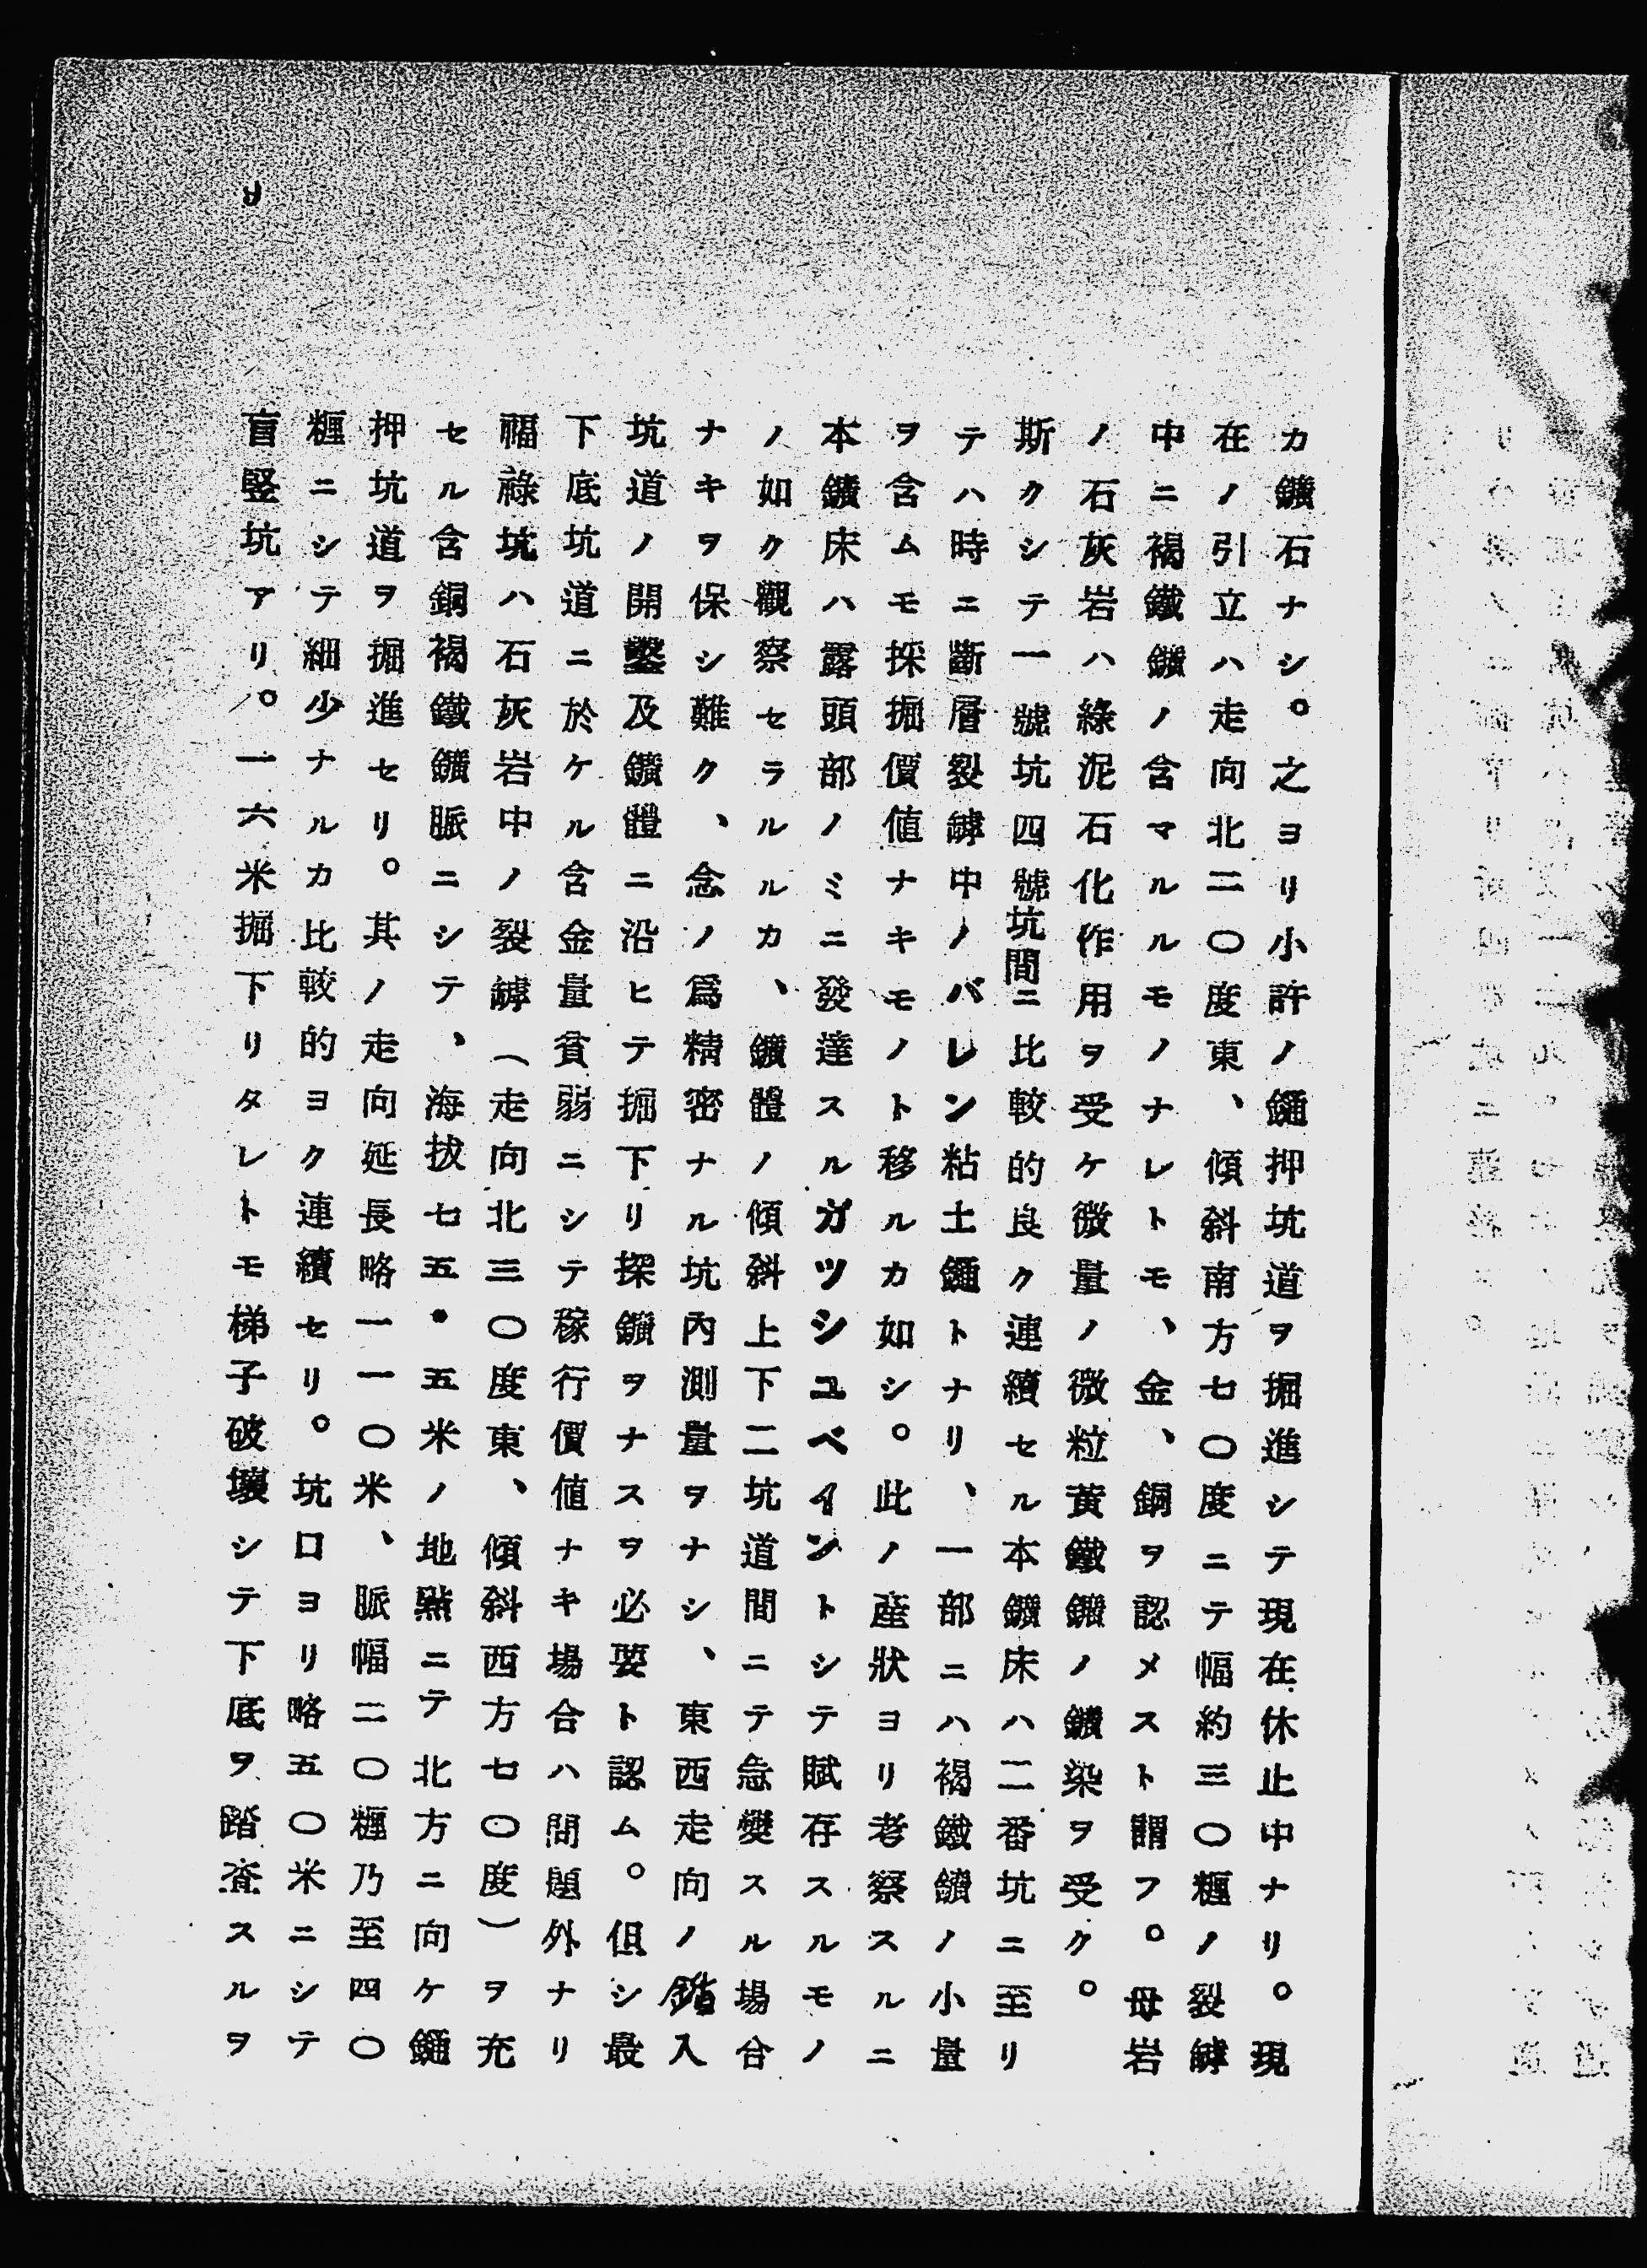 カ鑛石ナシ。之ヨリ小許ノ鑪押坑道ヲ掘進シテ現在休止中ナリ。現
在ノ引立ハ走向北二〇度東、傾斜南方七〇度ニテ幅約三〇糎ノ裂罅
中ニ褐鐵鑛ノ含マルルモノナレトモ、金、銅ヲ認メスト謂フ。母岩
ノ石灰岩ハ綠泥石化作用ヲ受ケ微量ノ微粒黃鐵鑛ノ鑛染ヲ受ク。
斯クシテ一號坑四號坑間ニ比較的良ク連續セル本鑛床ハ二番坑ニ至リ
テハ時ニ斷層裂罅中ノバレン粘土鑪トナリ、一部ニハ褐鐵鑛ノ小量
ヲ含ムモ採掘價値ナキモノト移ルカ如シ。此ノ産狀ヨリ老察スルニ
本鑛床ハ露頭部ノミニ發達スルガツシユベイントシテ賦存スルモノ
ノ如ク觀察セラルルカ、鑛體ノ傾斜上下二坑道間ニテ急變スル場合
ナキヲ保シ難ク、念ノ爲精密ナル坑內測量ヲナシ、東西走向ノ入
坑道ノ開鑿及鑛體ニ沿ヒテ掘下リ探鑛ヲナスヲ必要ト認ム。但シ最
下底坑道ニ於ケル含金量貧弱ニシテ稼行價値ナキ場合ハ問題外ナリ
福祿坑ハ石灰岩中ノ裂罅（走向北三〇度東、傾斜西方七〇度）ヲ充
セル含銅褐鐵鑛脈ニシテ、海拔七五・五米ノ地點ニテ北方ニ向ケ鑪
押坑道ヲ掘進セリ。其ノ走向延長略一一〇米、脈幅二〇糎乃至四〇
糎ニシテ細少ナルカ比較的ヨク連續セリ。坑口ヨリ略五〇米ニシテ
盲竪坑アリ。一六米掘下リタレトモ梯子破壞シテ下底ヲ踏査スルヲ